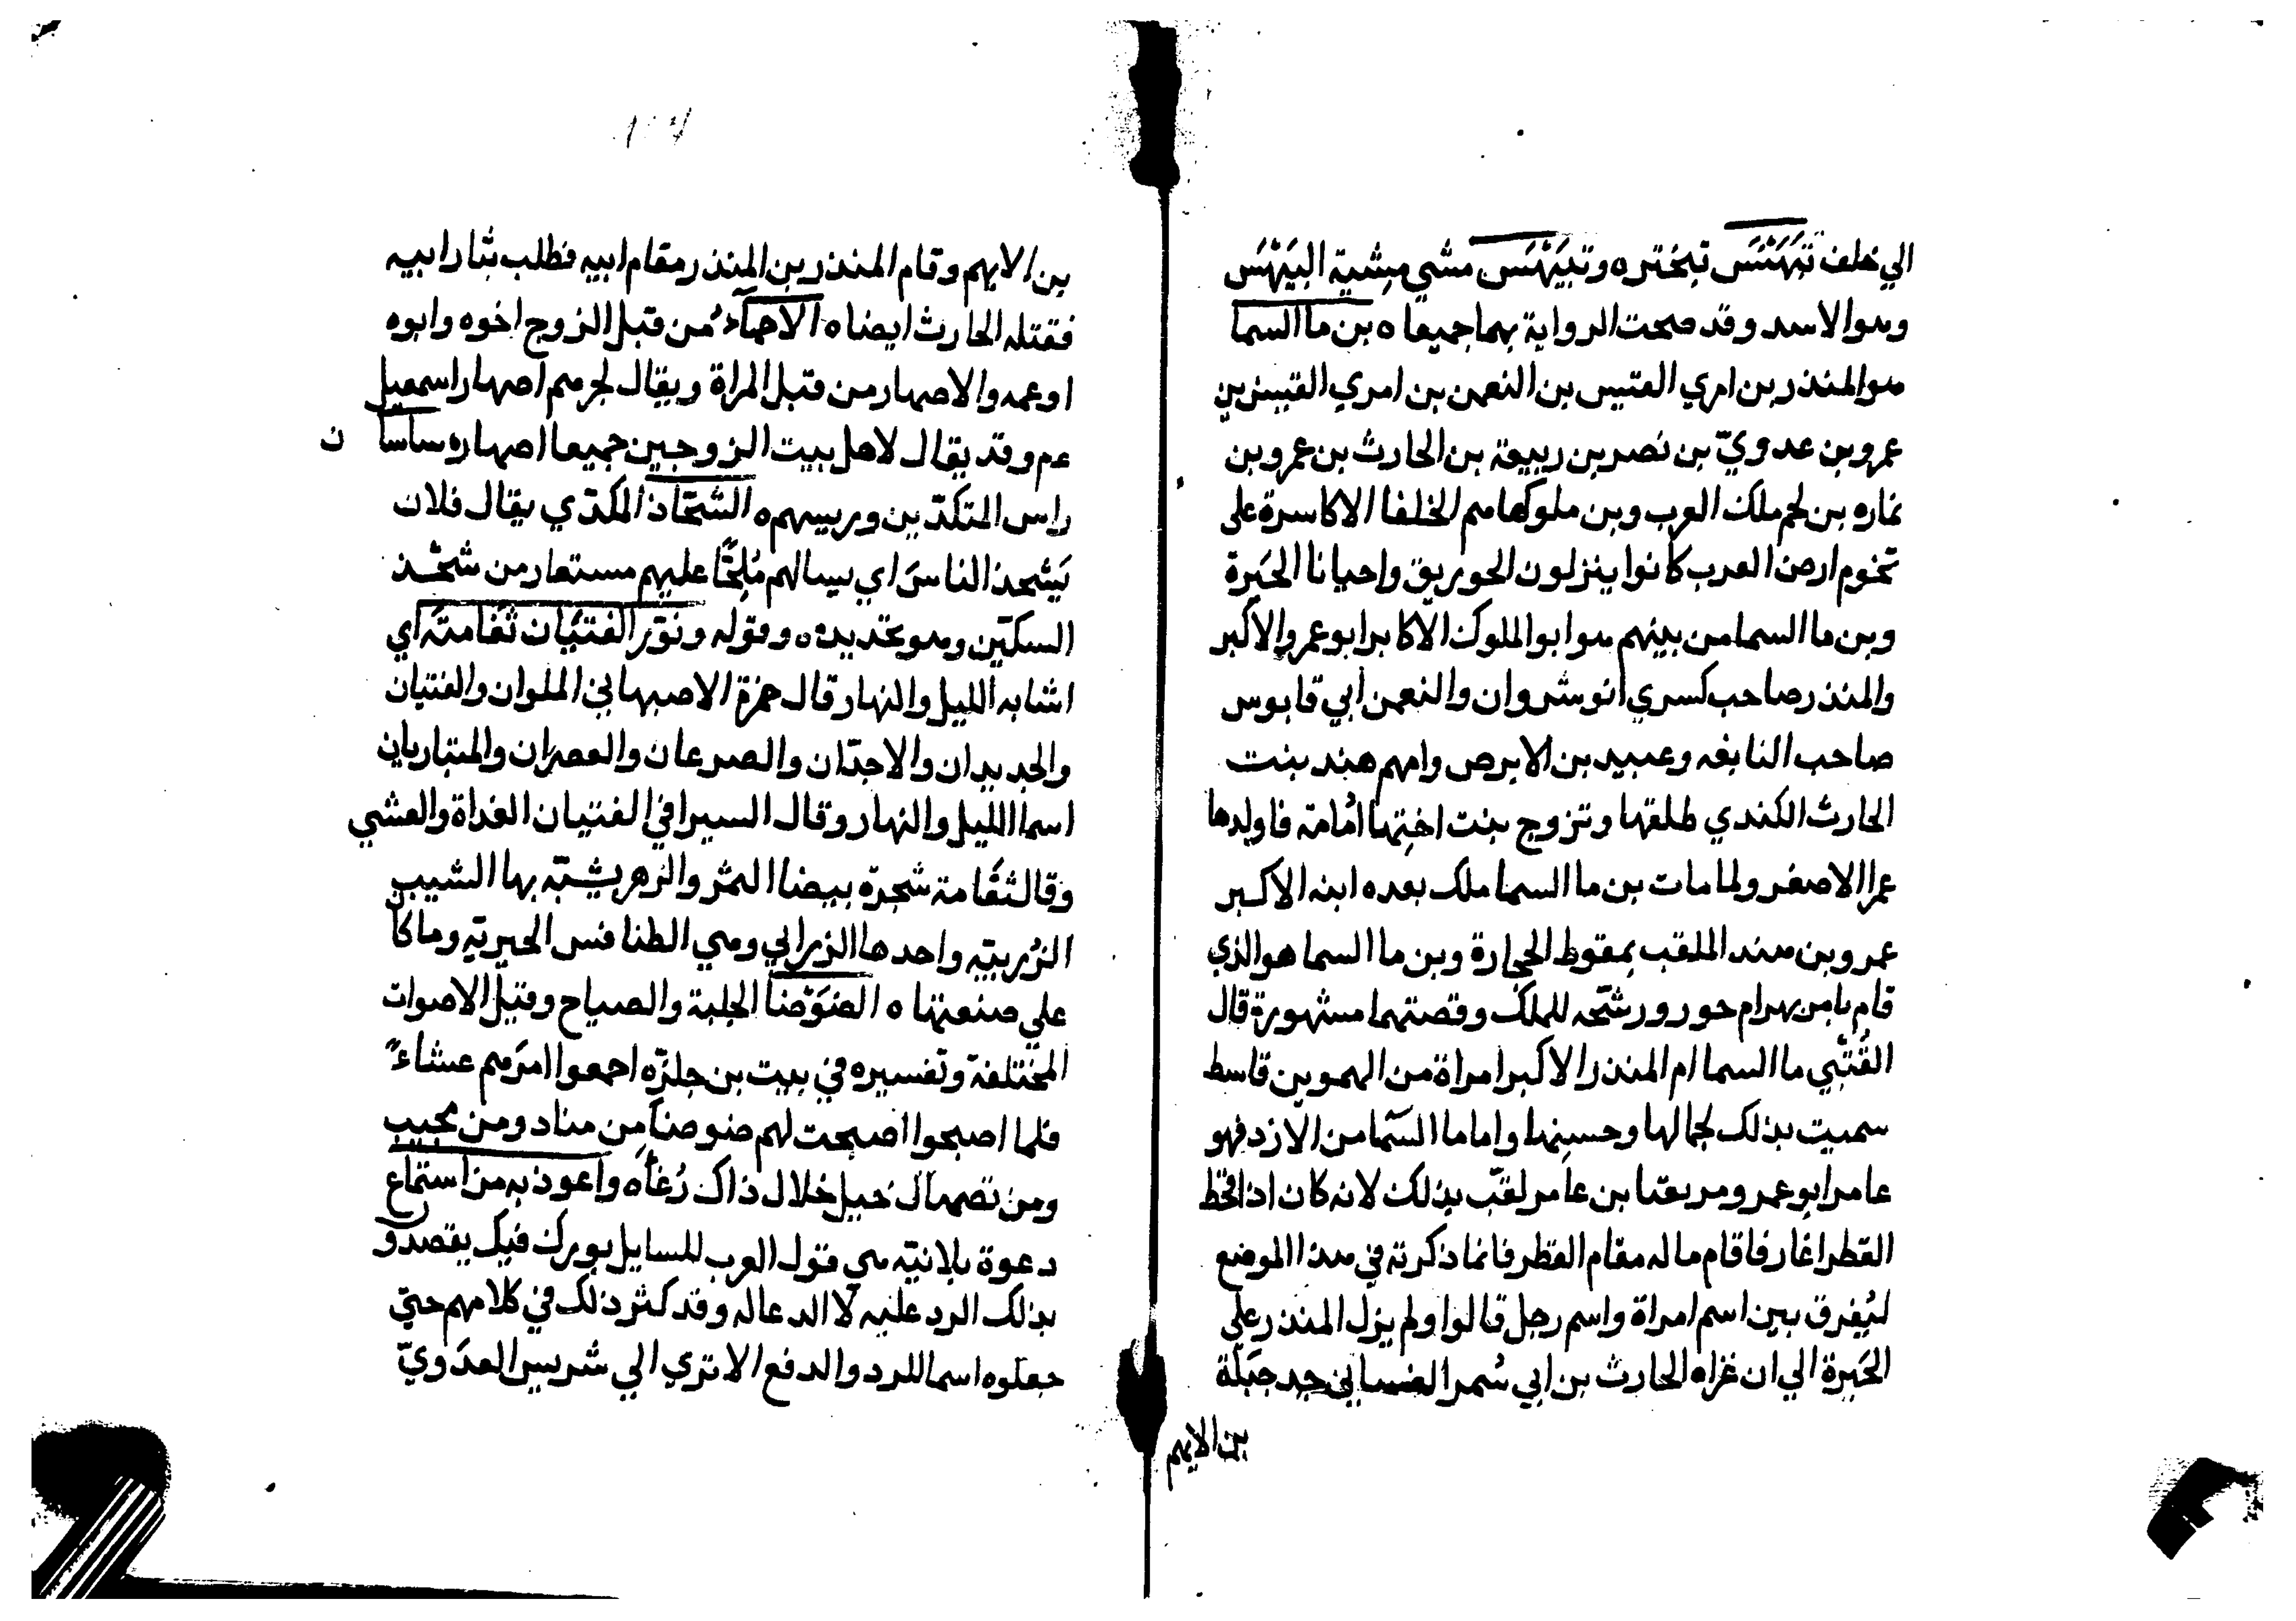 الي خلف تبهنس تبختر ه وتبيهس مشي مشية البيهس
وهو الاسد وقد صحت الرواية بهما جميعا ه بن ما السما
هو المنذر بن امري القيس بن النعمن بن امري القيس بن
عمرو بن عدوي بن نصر بن ربيعة بن الحارث بن عمرو بن
نماره بن لخم ملك العرب وبن ملوكها هم الخلفا الاكاسرة على
تخوم ارض العرب كانوا ينزلون الحوريق واحيانا الحيرة
وبن ما السما من بينهم هو ابو الملوك الاكابر ابو عمرو الاكبر
والمنذر صاحب كسري انوشروان والنعمن ابي قابوس
صاحب النابغه وعبيد بن الابرص وامهم هند بنت
الحارث الكندي طلقها وتزوج بنت اختها امامة فاولدها
عمرا الاصغر ولما مات بن ما السما ملك بعده ابنه الاكبر
عمرو بن هند الملقب بمقوط الحجارة وبن ما السما هو الذي
قام بامر بهرام حور ورشحه للملك وقصتهما مشهورة قال
القتبي ما السما ام المنذر الاكبر امراة من النمر بن قاسط
سميت بذلك لجمالها وحسنها واما ما السما من الازد فهو
عامر ابو عمرو مزيقيا بن عامر لقب بذلك لانه كان اذا قحط
القطر اغار فاقام ماله مقام القطر فانما ذكرته في هذا الموضع
ليفرق بين اسم امراة واسم رجل قالوا ولم يزل المنذر على
الحيرة الي ان غزاه الحارث بن ابي شمر الغساني جد جبلة
بن الايهم
بن الايهم وقام المنذر بن المنذر مقام ابيه فطلب بثار ابيه
فقتله الحارث ايضا ه الاحماء من قبل الزوج اخوه وابوه
او عمه والاصهار من قبل المراة ويقال لجرهم اصهار اسمعيل
عم وقد يقال لاهل بيت الزوجين جميعا اصهار ه ساسان
راس المتكدين وربيسهم ه الشحاذ المكدي يقال فلان
يشحذ الناس اي يسالهم ملحا عليهم مستعار من شحذ
السكين وهو تحديده ه وقوله ونور الفتيان ثغامته اي
اشابه الليل والنهار قال حمزة الاصبهاني الملوان والفتيان
والجديدان والاجدان والصرعان والعصران والمتباريان
اسما الليل والنهار وقال السيرافي الفتيان الغداة والعشي
وقا لثغامة شجرة بيضا الثمر والزهر يشبه بها الشيب
الزربية واحدها الزرابي وهي الطنافس الحيرية وما كان
علي صنعتها ه الضوضا الجلبة والصياح وقيل الاصوات
المختلفة وتفسيره في بيت بن حلزه اجمعوا امرهم عشاء
فلما اصبحوا اصبحت لهم ضوضا من مناد ومن مجيب
ومن تصهال خيل خلال ذاك رغاه واعوذ به من استماع
دعوة بلانية هي قول العرب للسايل بورك فيك يقصدون
بذلك الرد عليه لا الدعا له وقد كثر ذلك في كلامهم حتي
جعلوه اسما للرد والدفع الا تري الي شريس العدوي